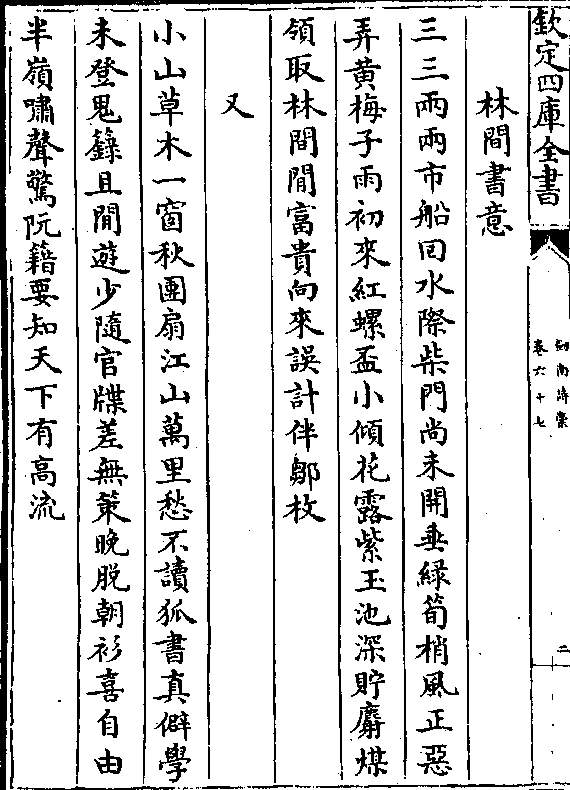 欽定四庫全書
劍南詩槀
卷六十七
二
林間書意
三三兩兩市船回水際柴門尚未開垂緑筍梢風正惡
弄黄梅子雨初來紅螺盃小傾花露紫玉池深貯麝煤
領取林間閒富貴向來誤計伴鄒枚
又
小山草木一窗秋團扇江山萬里愁不讀狐書真僻學
未登鬼籙且閒遊少隨官牒差無筭晚脱朝衫喜自由
半嶺嘯聲驚阮籍要知天下有高流